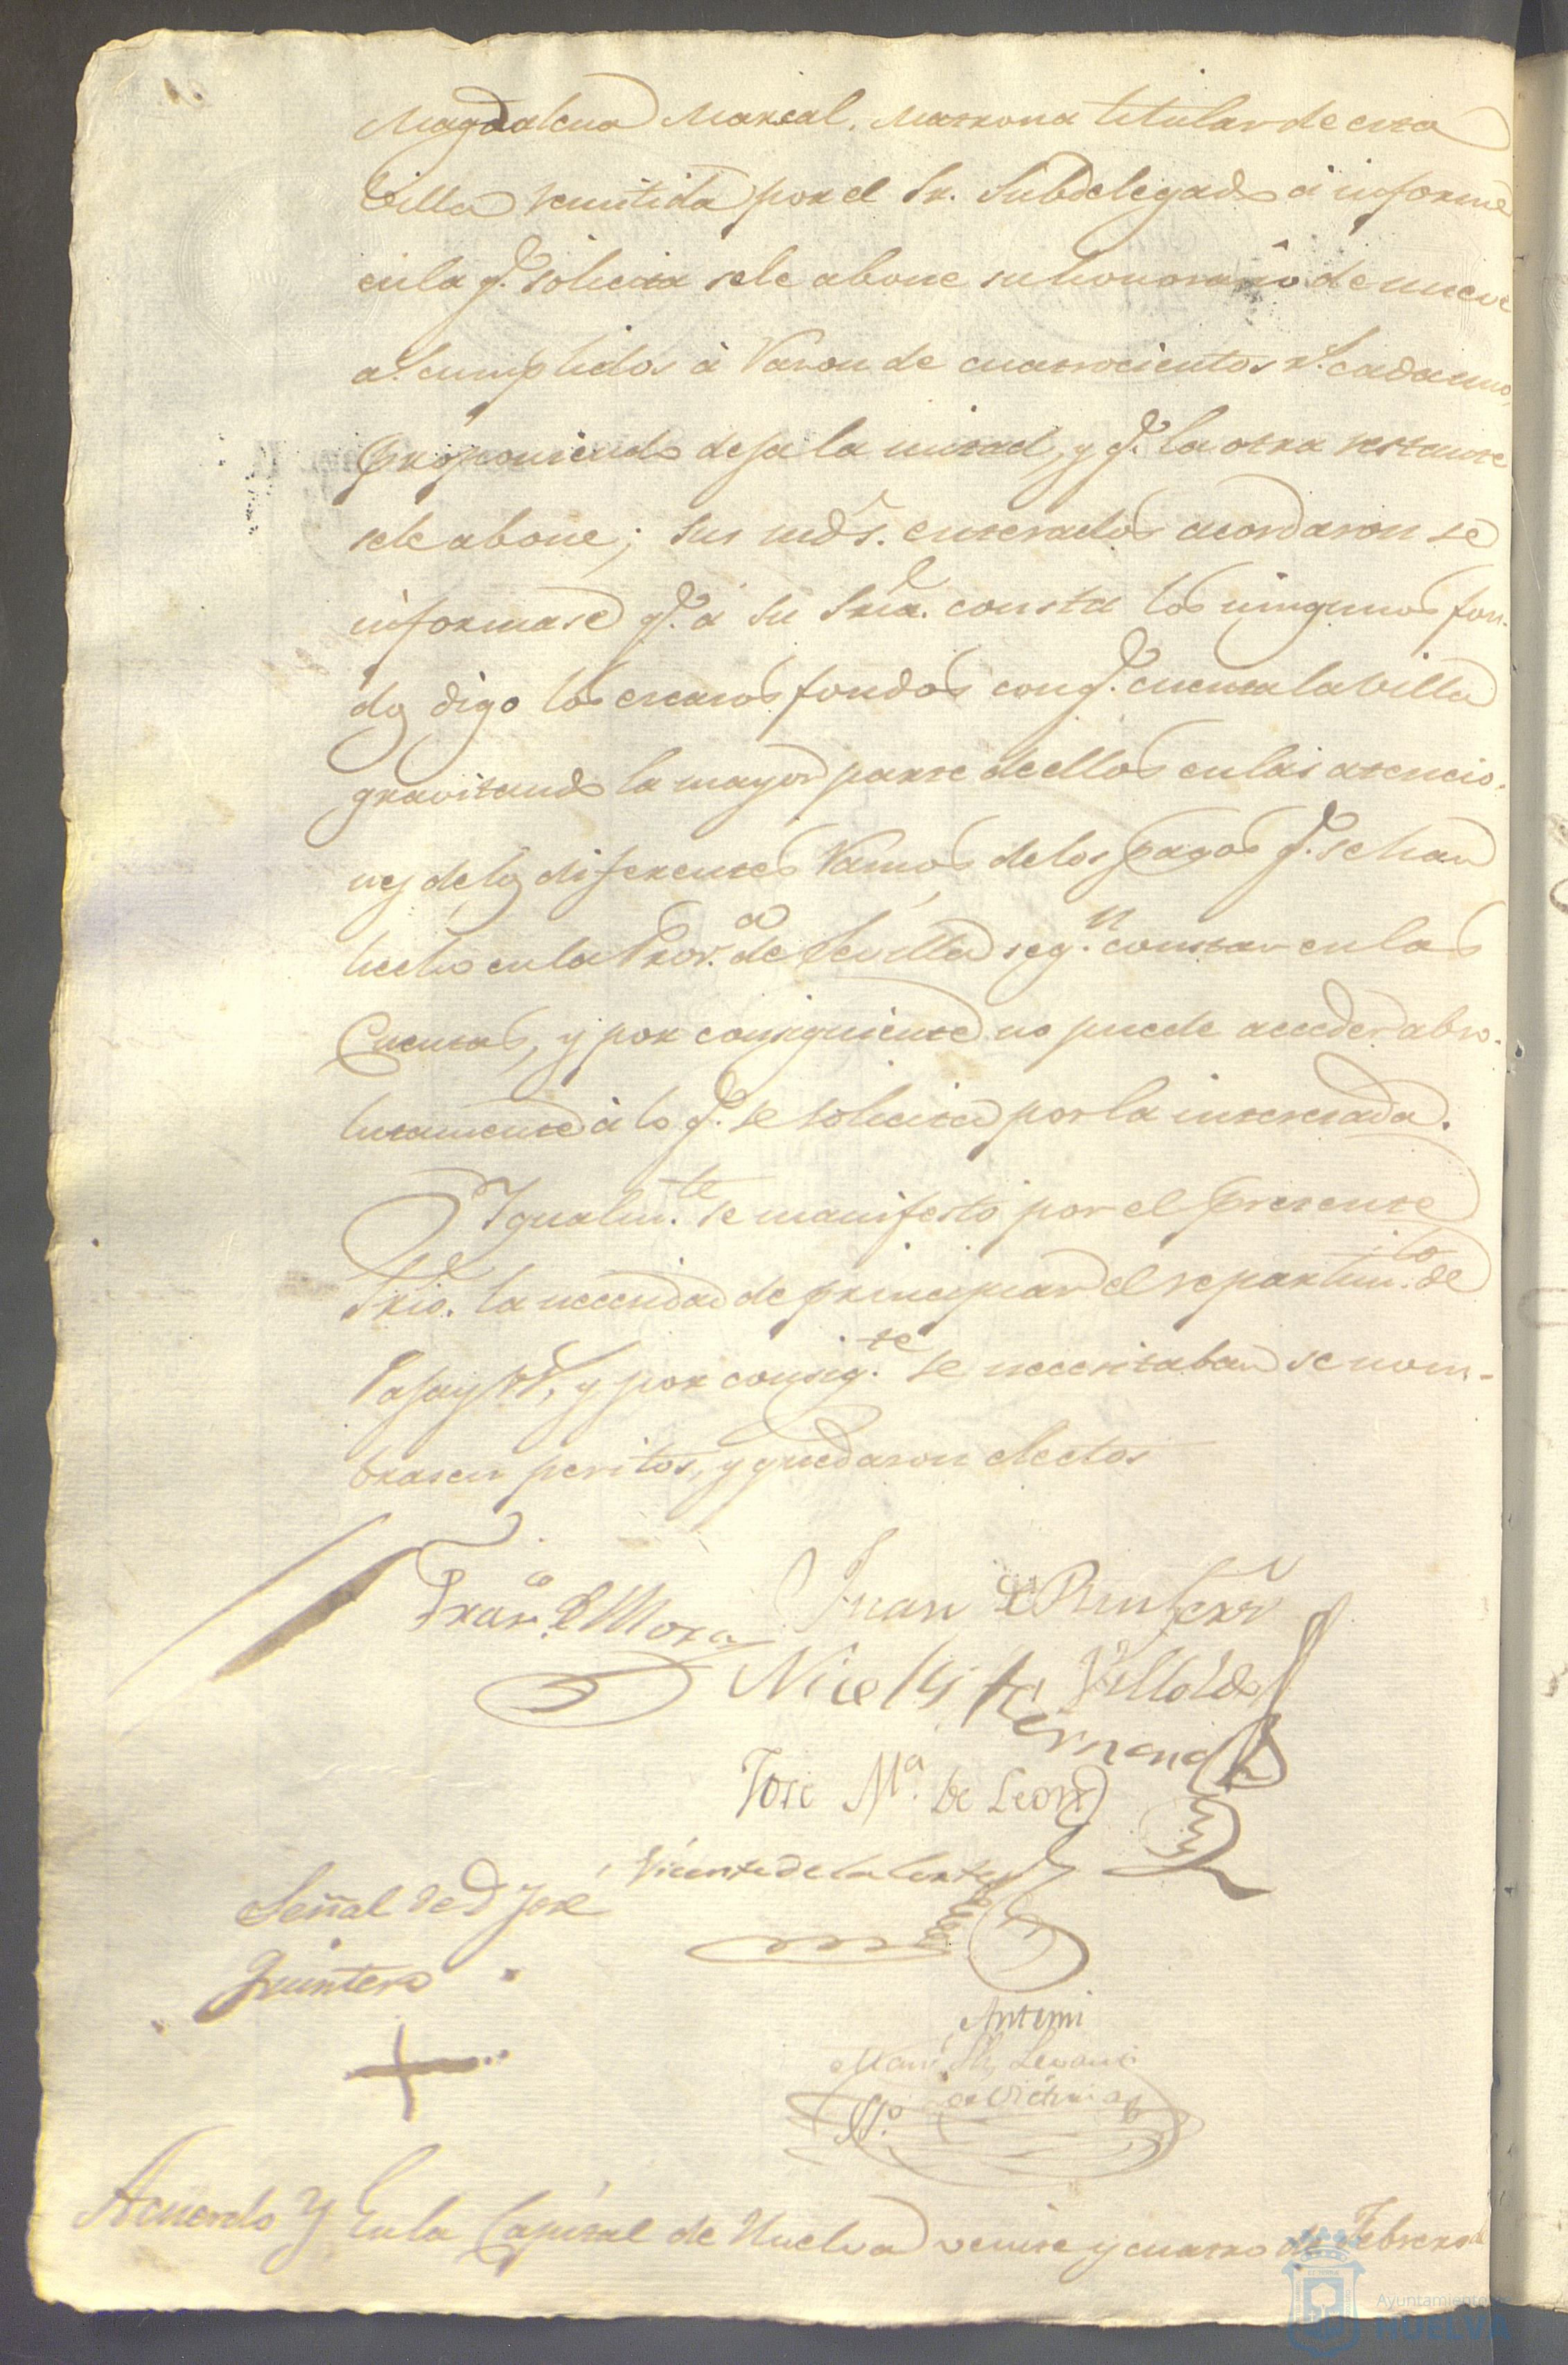 Magdalena Mareal. Matrona titular de esta
Villa remitida por el Sr. Subdelegado á informe
en la q.e solicita se le abone su honorario de nueve
a.s cumplidos á Razon de cuatrocientos r.s cada uno,
proponiendo deja la mitad, y q.e la otra restante
se le abone; sus mds. enterados acordaron se
informase q.e á su Sria. consta los ningunos fon-
dos digo los escasos fondos con q.e cuenta la villa
gravitando la mayor parte de ellos en las atencio-
nes de los diferentes Ramos de los pagos q.e se han
hecho en la Prov.a de Sevilla seg.n constar en las
Cuentas, y por consiguiente no puede acceder abso-
lutamente á lo q.e se solicita por la interesada.
Igualm.te se manifesto por el presente
Srio. la necesidad de principiar el repartim.to de
Paja y , y por consig.te se necesitaban se nom-
brasen peritos, y quedaron electos
Fran.co de Mora Juan Quintero
Nicolas Villalde
Hernand
Jose M.a de Leon
Vicente de la Corte
Señal de D Jose
Quintero
+
Antemi
Man
S.o
Acuerdo En la Capital de Huelva veinte y cuatro de Febrero de
Ayuntamiento de
HUELVA